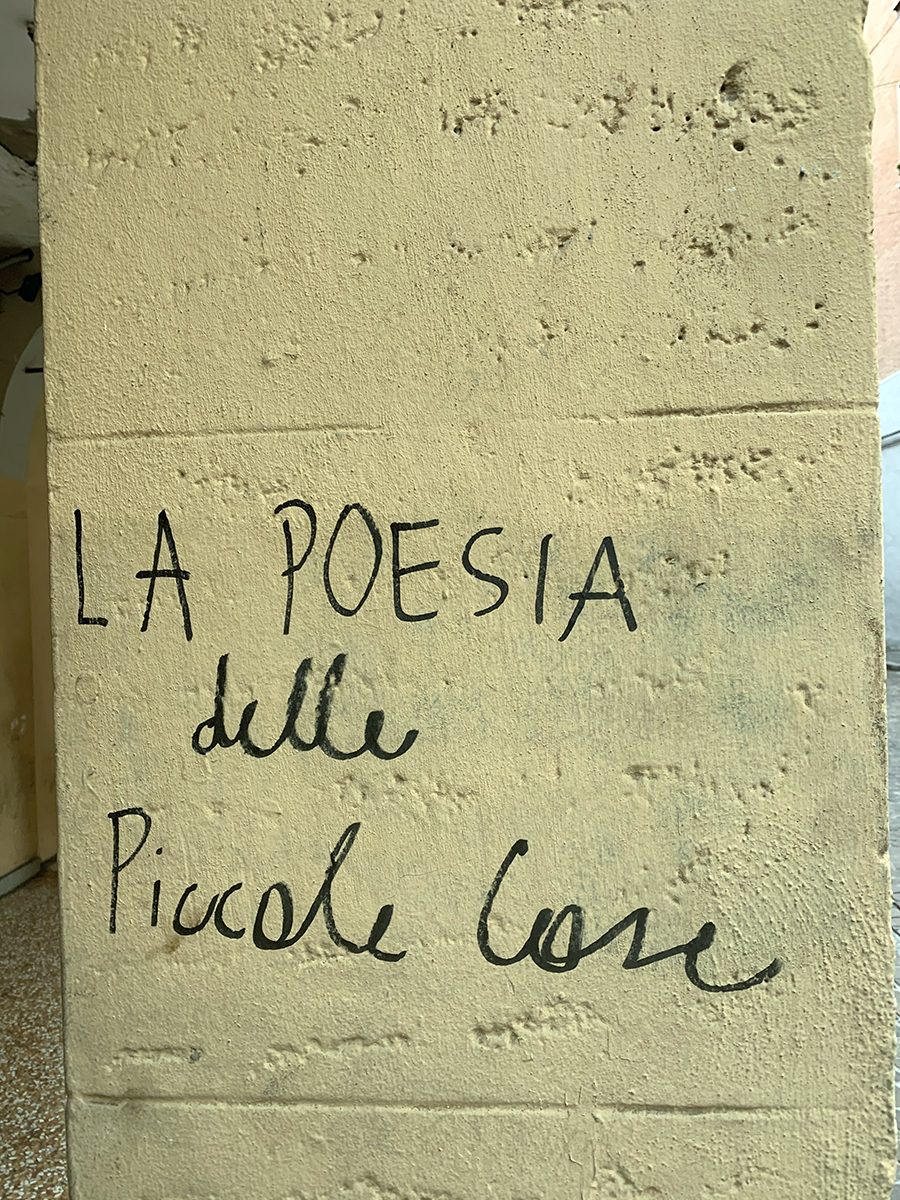 LA POESIA
delle
Piccole Cose